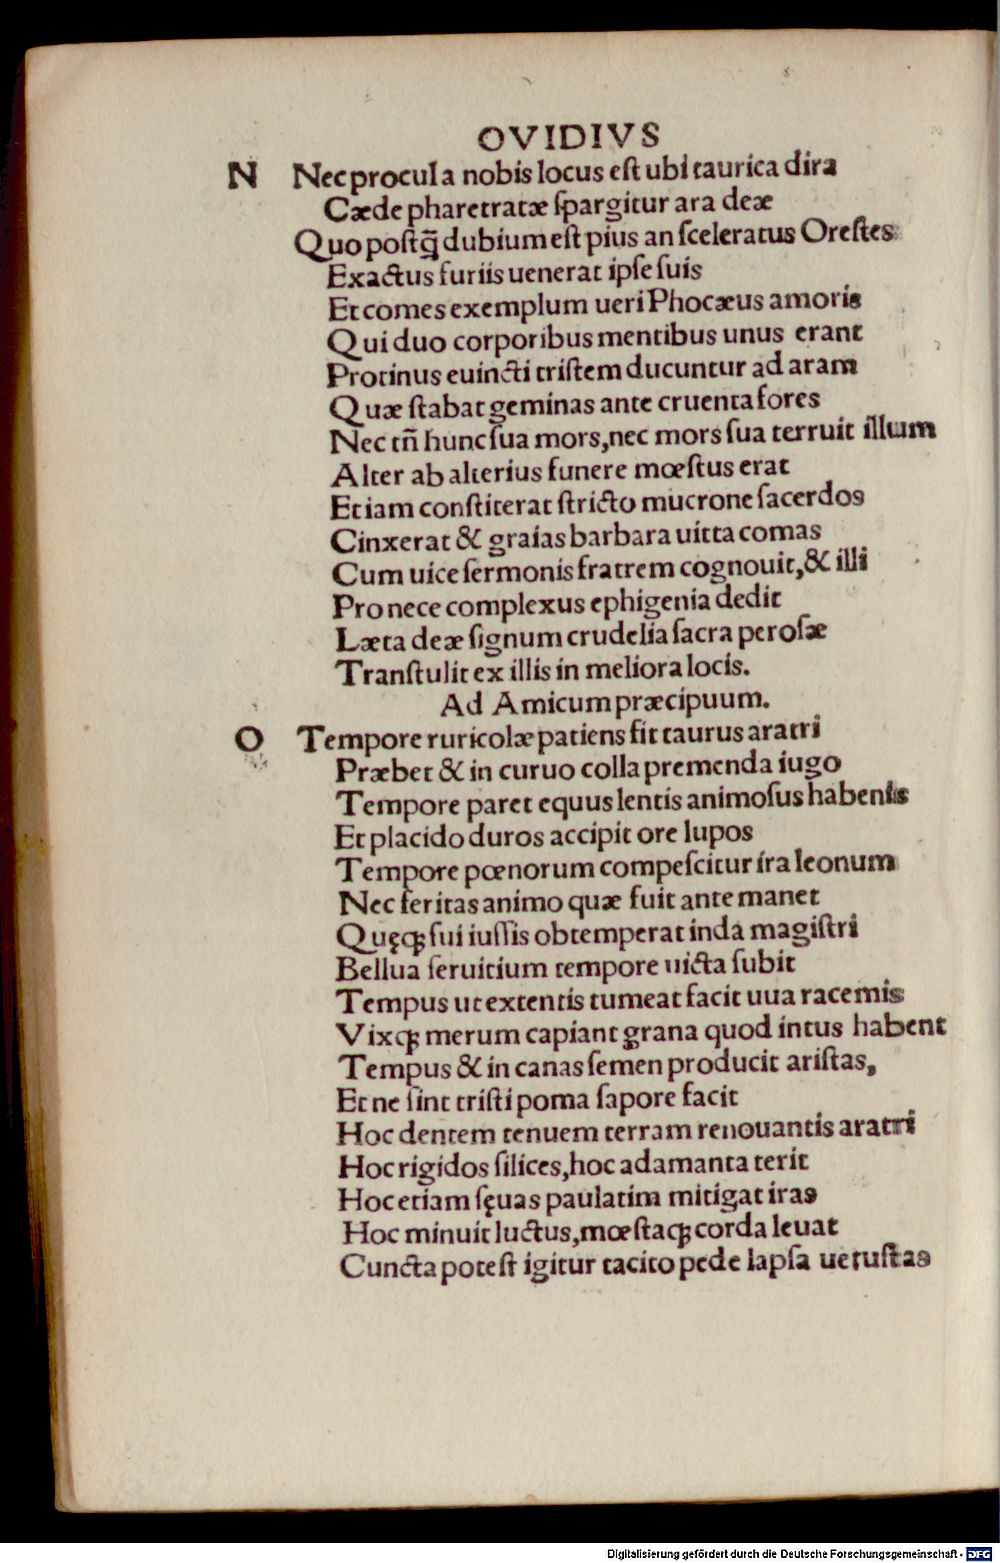 OVIDIVS
N Nec procul a nobis locus est ubi taurica dira
Cæde pharetratæ spargitur ara deæ
Quo postq̃ dubium est pius an sceleratus Orestes
Exactus furiis uenerat ipse suis
Et comes exemplum ueri Phocæus amoris
Qui duo corporibus mentibus unus erant
Protinus euincti tristem ducuntur ad aram
Quæ stabat geminas ante cruenta fores
Nec tñ hunc sua mors, nec mors sua terruit illum
Alter ab alterius funere mœstus erat
Et iam constiterat stricto mucrone sacerdos
Cinxerat & graias barbara uitta comas
Cum uice sermonis fratrem cognouit, & illi
Pro nece complexus ephigenia dedit
Læta deæ signum crudelia sacra perosæ
Transtulit ex illis in meliora locis.
Ad Amicum præcipuum.
O Tempore ruricolæ patiens fit taurus aratri
Præbet & in curuo colla premenda iugo
Tempore paret equus lentis animosus habenis
Et placido duros accipit ore lupos
Tempore pœnorum compescitur ira leonum
Nec feritas animo quæ fuit ante manet
Quęq; sui iussis obtemperat inda magistri
Bellua seruitium tempore uicta subit
Tempus ut extentis tumeat facit uua racemis
Vixq; merum capiant grana quod intus habent
Tempus & in canas semen producit aristas,
Et ne sint tristi poma sapore facit
Hoc dentem tenuem terram renouantis aratri
Hoc rigidos silices, hoc adamanta terit
Hoc etiam sęuas paulatim mitigat iras
Hoc minuit luctus, mœstaq; corda leuat
Cuncta potest igitur tacito pede lapsa uetustas
Digitalisierung gefördert durch die Deutsche Forschungsgemeinschaft - DFG